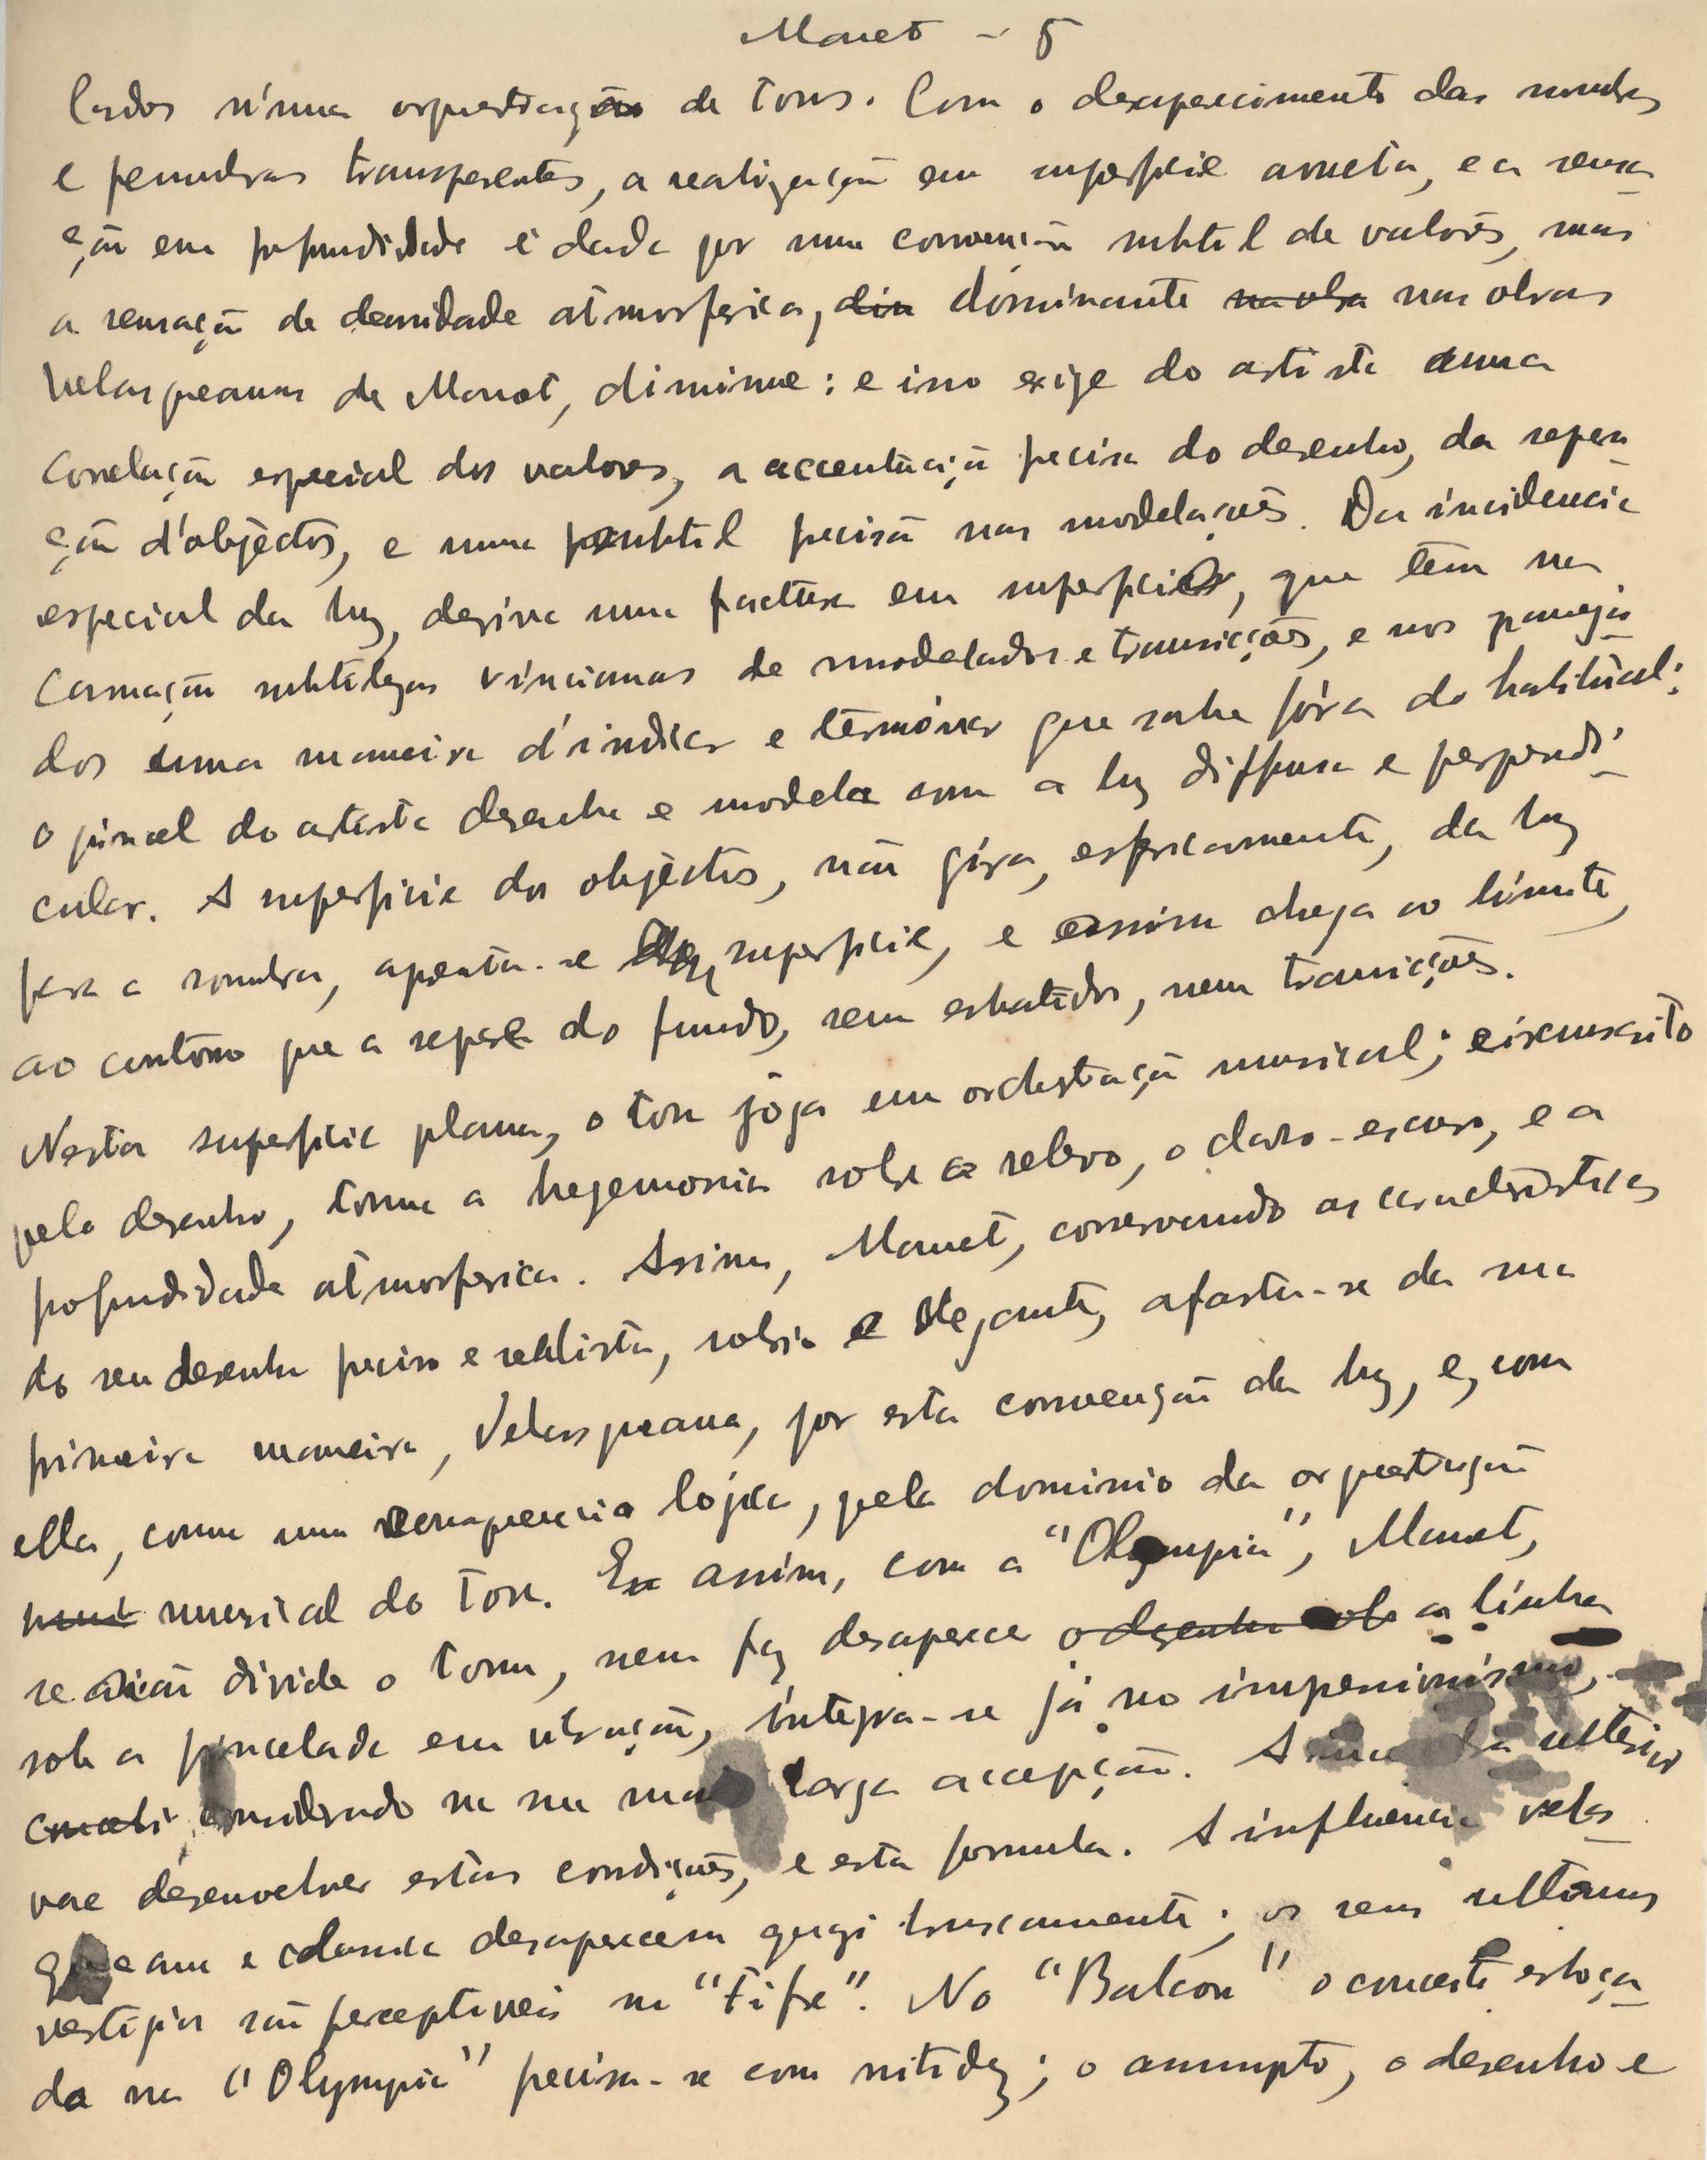 Manet - 5
lados n'uma orquestração de tons. Com o desaparecimento das sombras
e penumbras transparentes, a realização em superficie avulta, e a sensa
ção em profundidade é dada por uma convenção subtil de valores, mas
a sensação de densidade atmosferica, din dominante na obra nas obras
velasqueanas de Manet, diminue: e isso exige do artista uma
correlação especial dos valores, a accentuação precisa do desenho, da separa
ção d'objectos, e uma subtil precisão nas modelações. Da incidencia
especial da luz, deriva uma factura em superficie, que tem na
carnação subtilezas vincianas de modelados e transicções, e nos paneja
dos uma maneira d'indicar e terminar que sahe fóra do habitual:
o pincel do artista desenha e modela com a luz diffusa e perpendi
cular. A superficie dos objectos, não gira, esfericamente, da luz
para a sombra, apresenta-se superficie, e assim chega ao limite,
ao contorno que a separa do fundo, sem esbatidos, nem transicções.
Nesta superficie plana, o tom joga em orchestração musical; circumscrito
pelo desenho, toma a hegemonia sobre o relevo, o claro-escuro, e a
profundidade atmosferica. Assim, Manet, conservando as caracteristicas
do seu desenho preciso e realista, sobrio e elegante, afasta-se da sua
primeira maneira, Velasqueana, por esta convenção da luz, e, com
ella, como uma consequencia lojica, pelo dominio da orquestração
musical do tom. E assim, com a "Olympia", Manet,
se não divide o tom, nem faz desaparecer o desenho sob a linha
sob a pincelada em vibração, integra-se já no impressionismo,
considerado na sua mais larga accepção. A sua obra ulterior
vae desenvolver estas condições, e esta formula. A influencia velas
queana e desaparecem quazi bruscamente; os seus ultimos
vestigios são perceptiveis no "Fifre". No "Balcon" o conceito esboça
do na "Olympia" precisa-se com nitidez; o assumpto, o desenho e